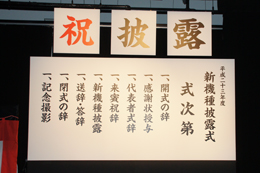 祝 披 露
平成二十二年度
新機種披露式
式次第
一、開式の辞
一、感謝状授与
一、代表者式辞
一、来賓祝辞
一、新機種披露
一、送辞・答辞
一、閉式の辞
一、記念撮影